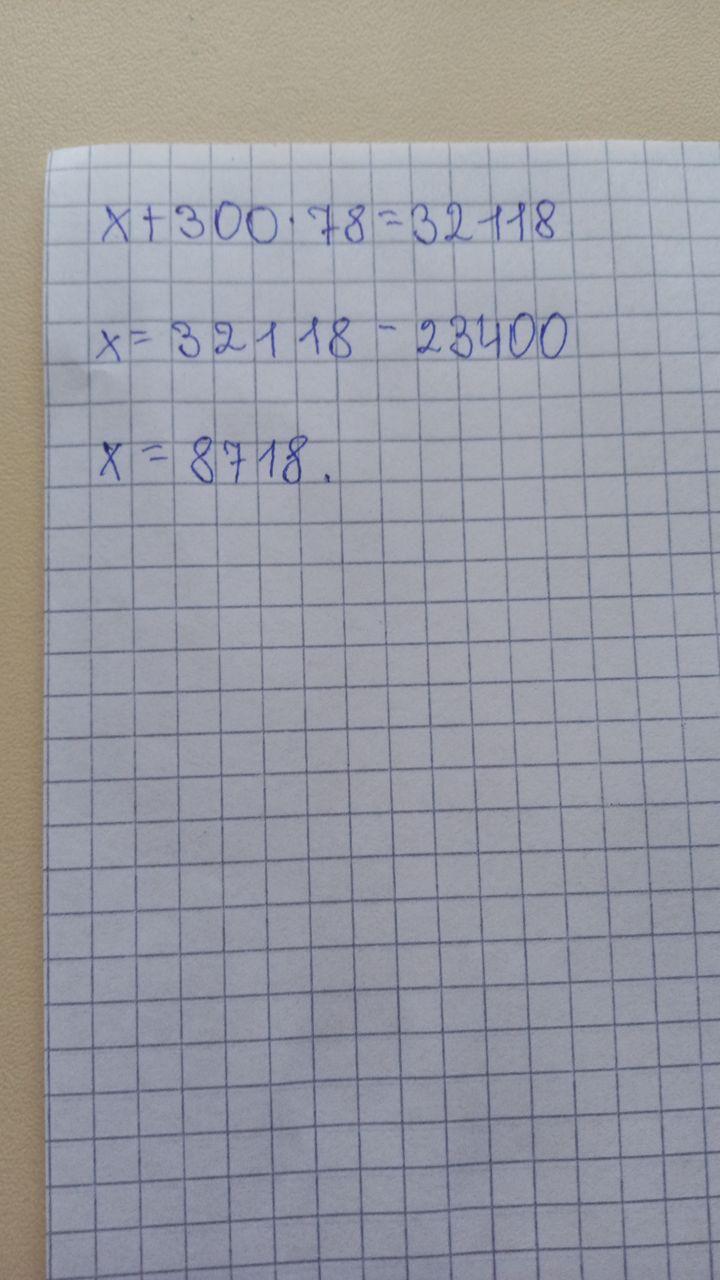 x+300·78=32118
x=32118-23400
x=8718.